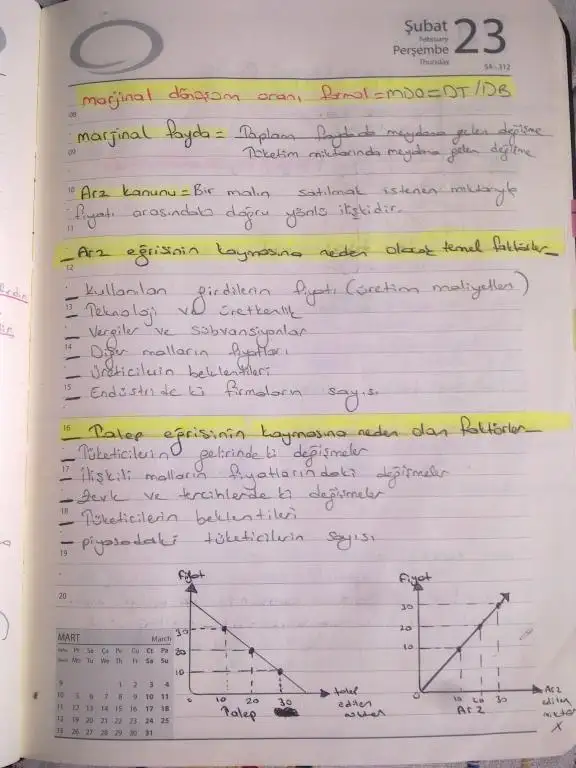 Şubat
February
Perşembe
Thursday
23
SA-312
marjinal dönüşüm oranı formül = MDO = DT/DB
08
marjinal fayda = Toplam faydada meydana gelen değişme
09
Tüketim miktarında meydana gelen değişme
10 Arz kanunu = Bir malın satılmak istenen miktarıyla
fiyatı arasındaki doğru yönlü ilişkidir.
11
_ Arz eğrisinin kaymasına neden olacak temel faktörler_
12
_ Kullanılan girdilerin fiyatı (üretim maliyetleri)
13
_ Teknoloji ve üretkenlik
_ Vergiler ve sübvansiyonlar
14
_ Diğer malların fiyatları
_ Üreticilerin beklentileri
15
_ Endüstride ki firmaların sayısı
16
_ Talep eğrisinin kaymasına neden olan faktörler_
_ Tüketicilerin gelirinde ki değişmeler
17
_ İlişkili malların fiyatlarındaki değişmeler
_ Zevk ve tercihlerde ki değişmeler
18
_ Tüketicilerin beklentileri
_ piyasadaki tüketicilerin sayısı
19
20
fiyat
30
20
10
0 10 20 30
talep
edilen
miktar
Talep
fiyat
30
20
10
0 10 20 30
Arz
edilen
miktar
Arz
X
MART March
Pt Sa Ça Pe Cu Ct Pa
Mo Tu We Th Fr Sa Su
9 1 2 3 4
10 5 6 7 8 9 10 11
11 12 13 14 15 16 17 18
12 19 20 21 22 23 24 25
13 26 27 28 29 30 31